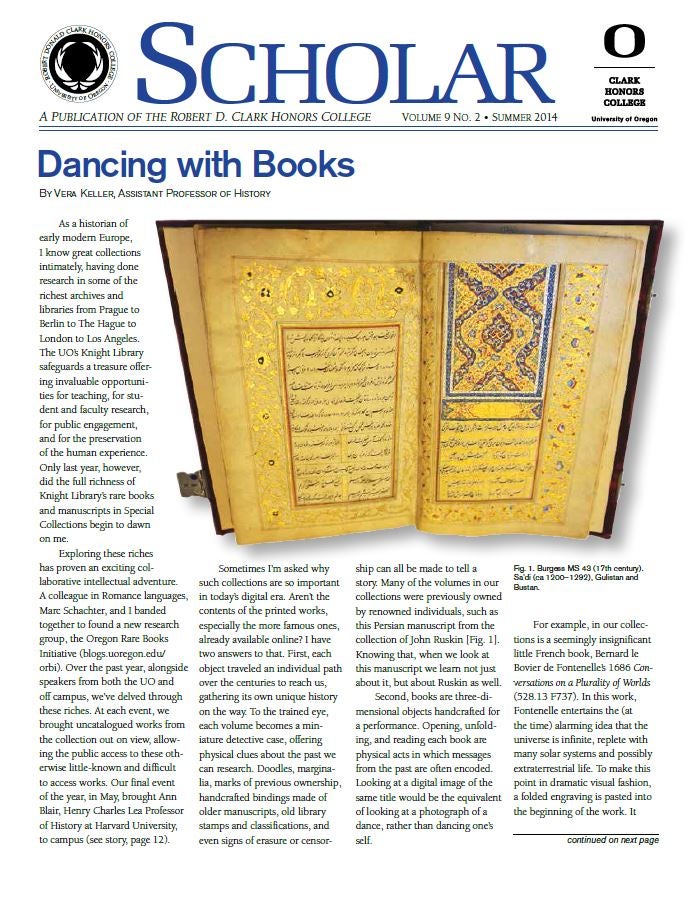 ROBERT DONALD CLARK HONORS COLLEGE
UNIVERSITY OF OREGON
SCHOLAR
O
CLARK
HONORS
COLLEGE
University of Oregon
A PUBLICATION OF THE ROBERT D. CLARK HONORS COLLEGE
VOLUME 9 NO. 2 • SUMMER 2014
Dancing with Books
BY VERA KELLER, ASSISTANT PROFESSOR OF HISTORY
As a historian of
early modern Europe,
I know great collections
intimately, having done
research in some of the
richest archives and
libraries from Prague to
Berlin to The Hague to
London to Los Angeles.
The UO's Knight Library
safeguards a treasure offer-
ing invaluable opportuni-
ties for teaching, for stu-
dent and faculty research,
for public engagement,
and for the preservation
of the human experience.
Only last year, however,
did the full richness of
Knight Library's rare books
and manuscripts in Special
Collections begin to dawn
on me.
Exploring these riches
has proven an exciting col-
laborative intellectual adventure.
A colleague in Romance languages,
Marc Schachter, and I banded
together to found a new research
group, the Oregon Rare Books
Initiative (blogs.uoregon.edu/
orbi). Over the past year, alongside
speakers from both the UO and
off campus, we've delved through
these riches. At each event, we
brought uncatalogued works from
the collection out on view, allow-
ing the public access to these oth-
erwise little-known and difficult
to access works. Our final event
of the year, in May, brought Ann
Blair, Henry Charles Lea Professor
of History at Harvard University,
to campus (see story, page 12).
Sometimes I'm asked why
such collections are so important
in today's digital era. Aren't the
contents of the printed works,
especially the more famous ones,
already available online? I have
two answers to that. First, each
object traveled an individual path
over the centuries to reach us,
gathering its own unique history
on the way. To the trained eye,
each volume becomes a min-
iature detective case, offering
physical clues about the past we
can research. Doodles, margina-
lia, marks of previous ownership,
handcrafted bindings made of
older manuscripts, old library
stamps and classifications, and
even signs of erasure or censor-
ship can all be made to tell a
story. Many of the volumes in our
collections were previously owned
by renowned individuals, such as
this Persian manuscript from the
collection of John Ruskin [Fig. 1].
Knowing that, when we look at
this manuscript we learn not just
about it, but about Ruskin as well.
Second, books are three-di-
mensional objects handcrafted for
a performance. Opening, unfold-
ing, and reading each book are
physical acts in which messages
from the past are often encoded.
Looking at a digital image of the
same title would be the equivalent
of looking at a photograph of a
dance, rather than dancing one's
self.
Fig. 1. Burgess MS 43 (17th century).
Sa'di (ca 1200–1292), Gulistan and
Bustan.
For example, in our collec-
tions is a seemingly insignificant
little French book, Bernard le
Bovier de Fontenelle's 1686 Con-
versations on a Plurality of Worlds
(528.13 F737). In this work,
Fontenelle entertains the (at
the time) alarming idea that the
universe is infinite, replete with
many solar systems and possibly
extraterrestrial life. To make this
point in dramatic visual fashion,
a folded engraving is pasted into
the beginning of the work. It
continued on next page